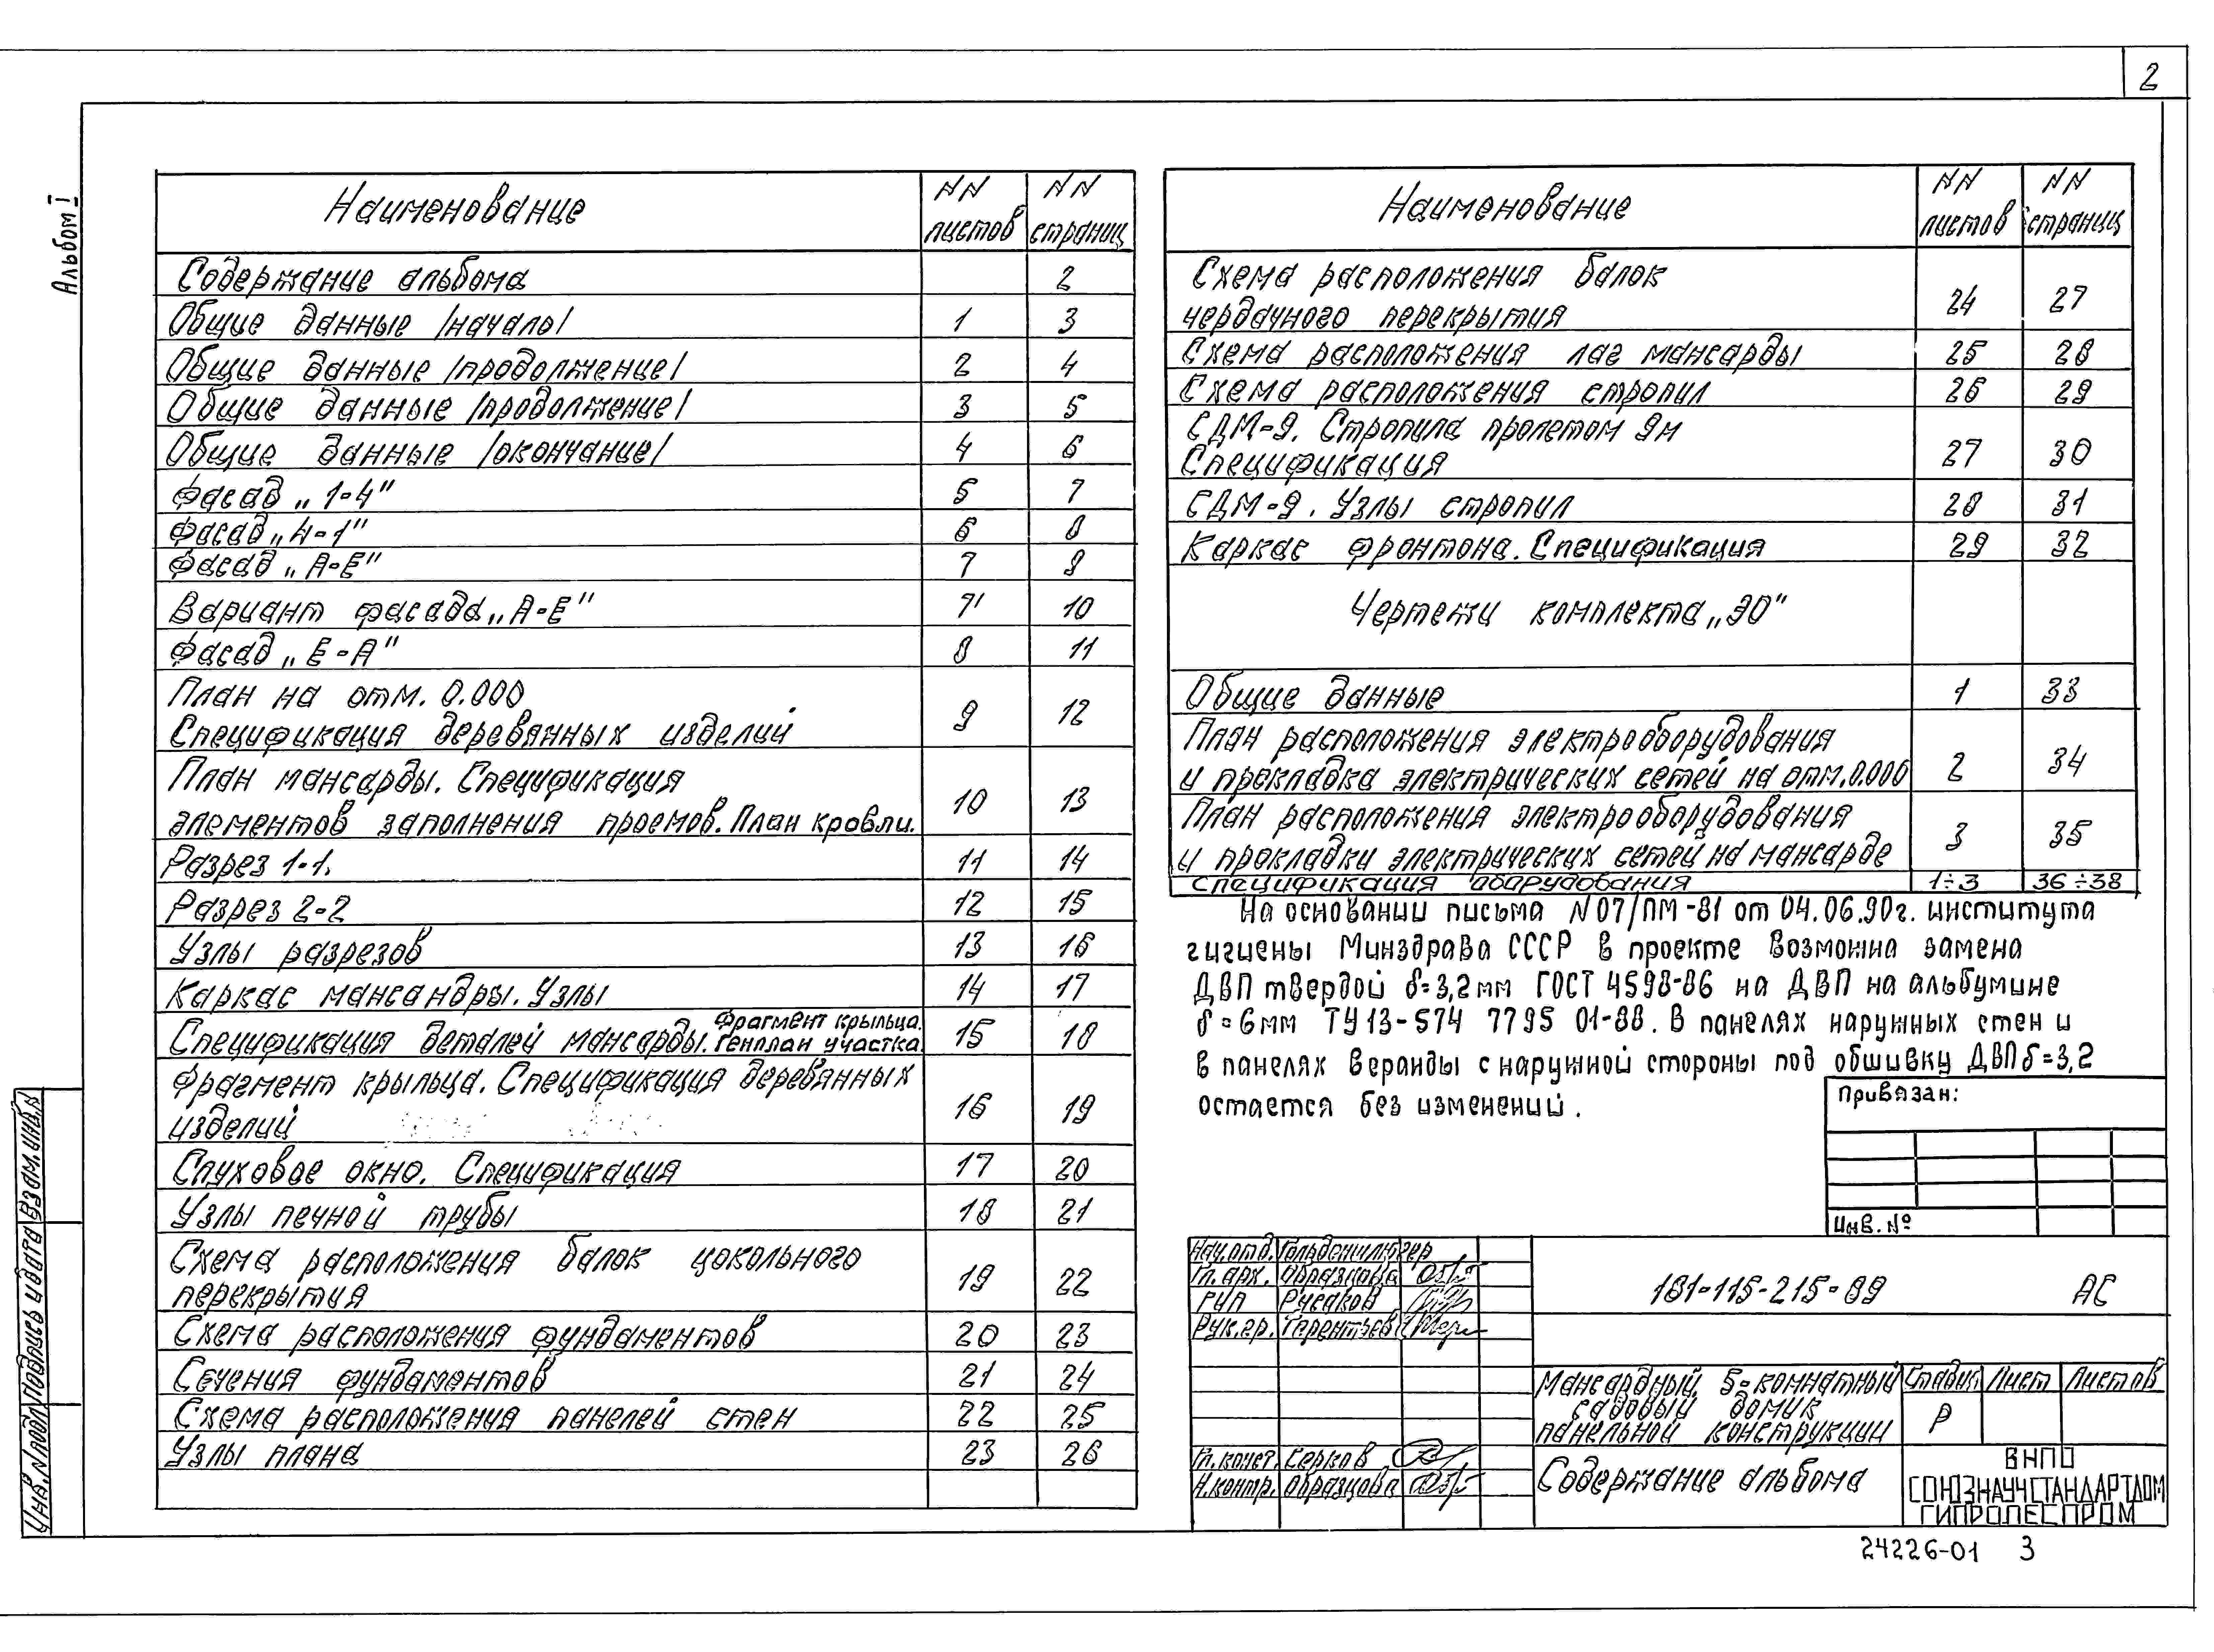 2
Альбом I
Наименование NN листов NN страниц
Содержание альбома 2
Общие данные /начало/ 1 3
Общие данные /продолжение/ 2 4
Общие данные /продолжение/ 3 5
Общие данные /окончание/ 4 6
Фасад „1-4" 5 7
Фасад „4-1" 6 8
Фасад „А-Е" 7 9
Вариант фасада „А-Е" 7' 10
Фасад „Е-А" 8 11
План на отм. 0.000
Спецификация деревянных изделий 9 12
План мансарды. Спецификация
элементов заполнения проемов. План кровли. 10 13
Разрез 1-1. 11 14
Разрез 2-2 12 15
Узлы разрезов 13 16
Каркас мансандры. Узлы 14 17
Спецификация деталей мансарды. Фрагмент крыльца. Генплан участка. 15 18
Фрагмент крыльца. Спецификация деревянных
изделий 16 19
Слуховое окно. Спецификация 17 20
Узлы печной трубы 18 21
Схема расположения балок цокольного
перекрытия 19 22
Схема расположения фундаментов 20 23
Сечения фундаментов 21 24
Схема расположения панелей стен 22 25
Узлы плана 23 26
Наименование NN листов NN страниц
Схема расположения балок
чердачного перекрытия 24 27
Схема расположения лаг мансарды 25 28
Схема расположения стропил 26 29
СДМ-9. Стропила пролетом 9м
Спецификация 27 30
СДМ-9. Узлы стропил 28 31
Каркас фронтона. Спецификация 29 32
Чертежи комплекта „ЭО"
Общие данные 1 33
План расположения электрооборудования
и прокладка электрических сетей на отм. 0.000 2 34
План расположения электрооборудования
и прокладки электрических сетей на мансарде 3 35
Спецификация оборудования 1÷3 36÷38
На основании письма N07/ПМ-81 от 04.06.90г. института
гигиены Минздрава СССР в проекте возможна замена
ДВП твердой δ=3,2мм ГОСТ 4598-86 на ДВП на альбумине
δ=6мм ТУ13-574 7795 01-88. В панелях наружных стен и
в панелях веранды с наружной стороны под обшивку ДВП δ=3,2
остается без изменений.
Привязан:
Инв. №
Нач.отд.
Гл. арх. Образцова
ГИП Русаков
Рук.гр. Терентьев
Гл. конст. Серков
Н.контр. Образцова
181-115-215-89 АС
Мансардный 5-комнатный
садовый домик
панельной конструкции
Стадия Лист Листов
Р
Содержание альбома
ВНПО
СОЮЗНАУЧСТАНДАРТДОМ
ГИПРОЛЕСПРОМ
24226-01 3
Взам.инв.N
Подпись и дата
Инв.N подл.